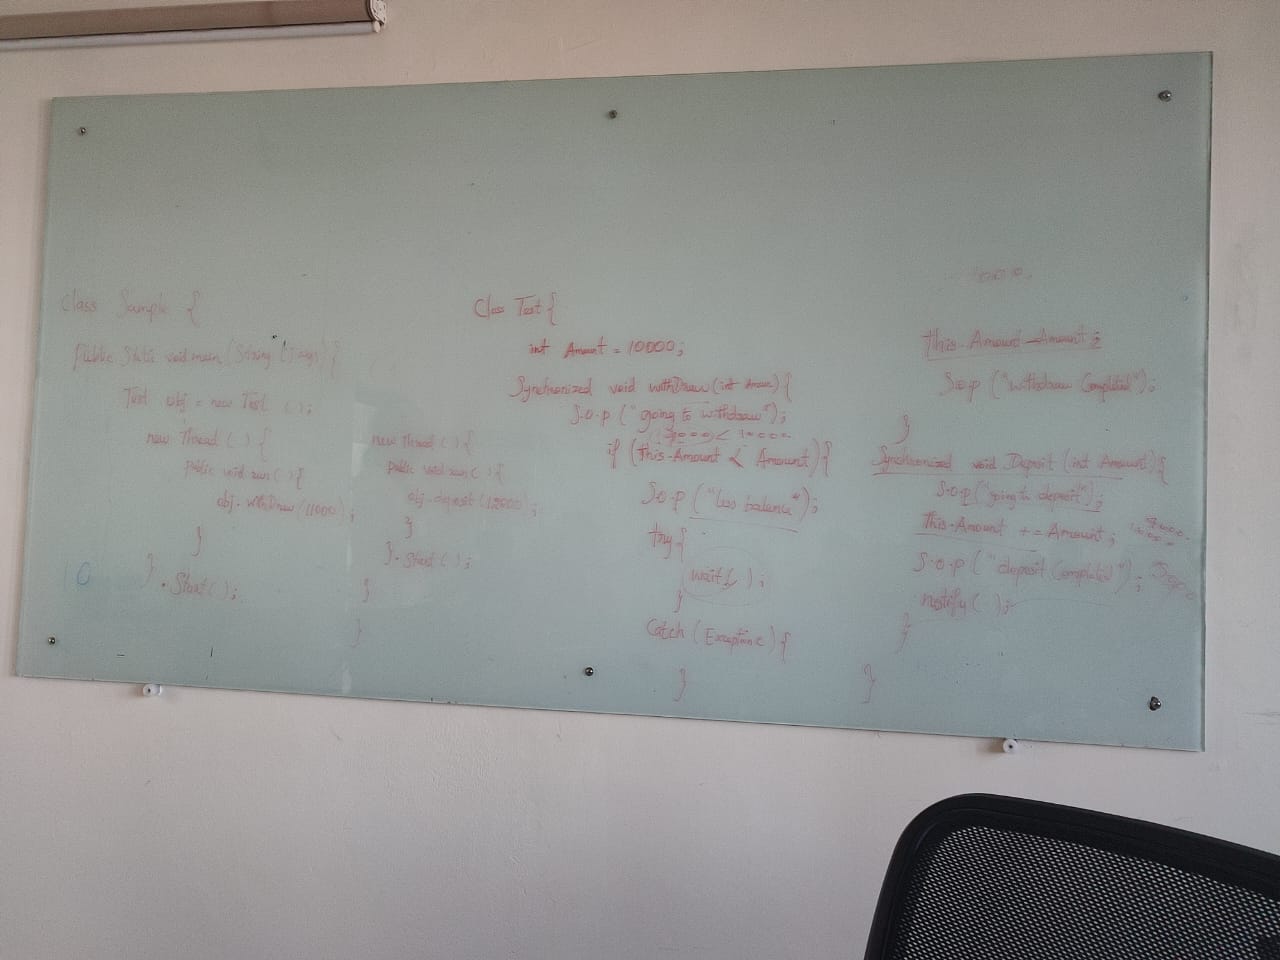 Class Sample {
Public Static void main (String [] args) {
Test obj = new Test ( );
new Thread ( ) {
public void run ( ) {
obj. withDraw (11000) ;
}
} . Start ( ) ;
new Thread ( ) {
public void run ( ) {
obj. deposit ( ) ;
}
} . Start ( ) ;
}
}
Class Test {
int Amount = 10000 ;
Synchronized void withDraw (int Amount) {
S.o.p ("going to withdraw") ;
< 10000
if (this.Amount < Amount) {
S.o.p ("Less balance") ;
try {
wait ( ) ;
}
Catch (Exception e) {
}
this.Amount -= Amount ;
S.o.p ("withdraw Completed") ;
}
Synchronized void Deposit (int Amount) {
S.o.p ("going to deposit") ;
this.Amount += Amount ;
S.o.p ("deposit Completed") ;
notify ( ) ;
}
}